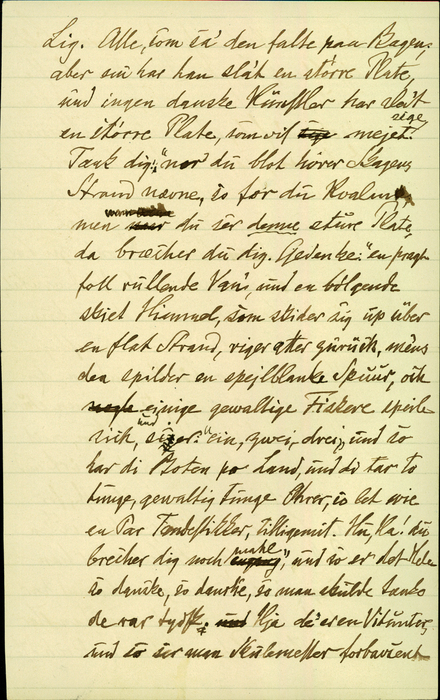 Lig. Alle, som så den falte paa Bagen;
aber nu har han slåt en större Plate,
und ingen danske Künstler har slåt
en större Plate, som vil sige mejet.
Tænk dig: "når du blot hörer Skagens
Strand nævne, so får du Kvalm,
men du sér denne stüre Plate,
da bræcher du dig. Gedenke: "en pragt-
foll rüllende Van, und en bölgende
skiet Himmel, som skider sig üp über
en flat Strand, viger atter zürück, mens
den spilder en spejlblanke Spüur, och
ejnige gewaltige Fiskere speile
sich, und siger: "ein, zwei, drei, und so
har di Boten po Land, und di tar to
tunge, gewaltig tunge Ohrer, so let wie
en Par Tandstikker, tilligemit. Hu, ha! du
breiher dig noch mahl", und so er det Hele
so danske, so danske, so man skulde tænke
de var tydsk. Hja de er en Vidünter,
und so sér man forbavset